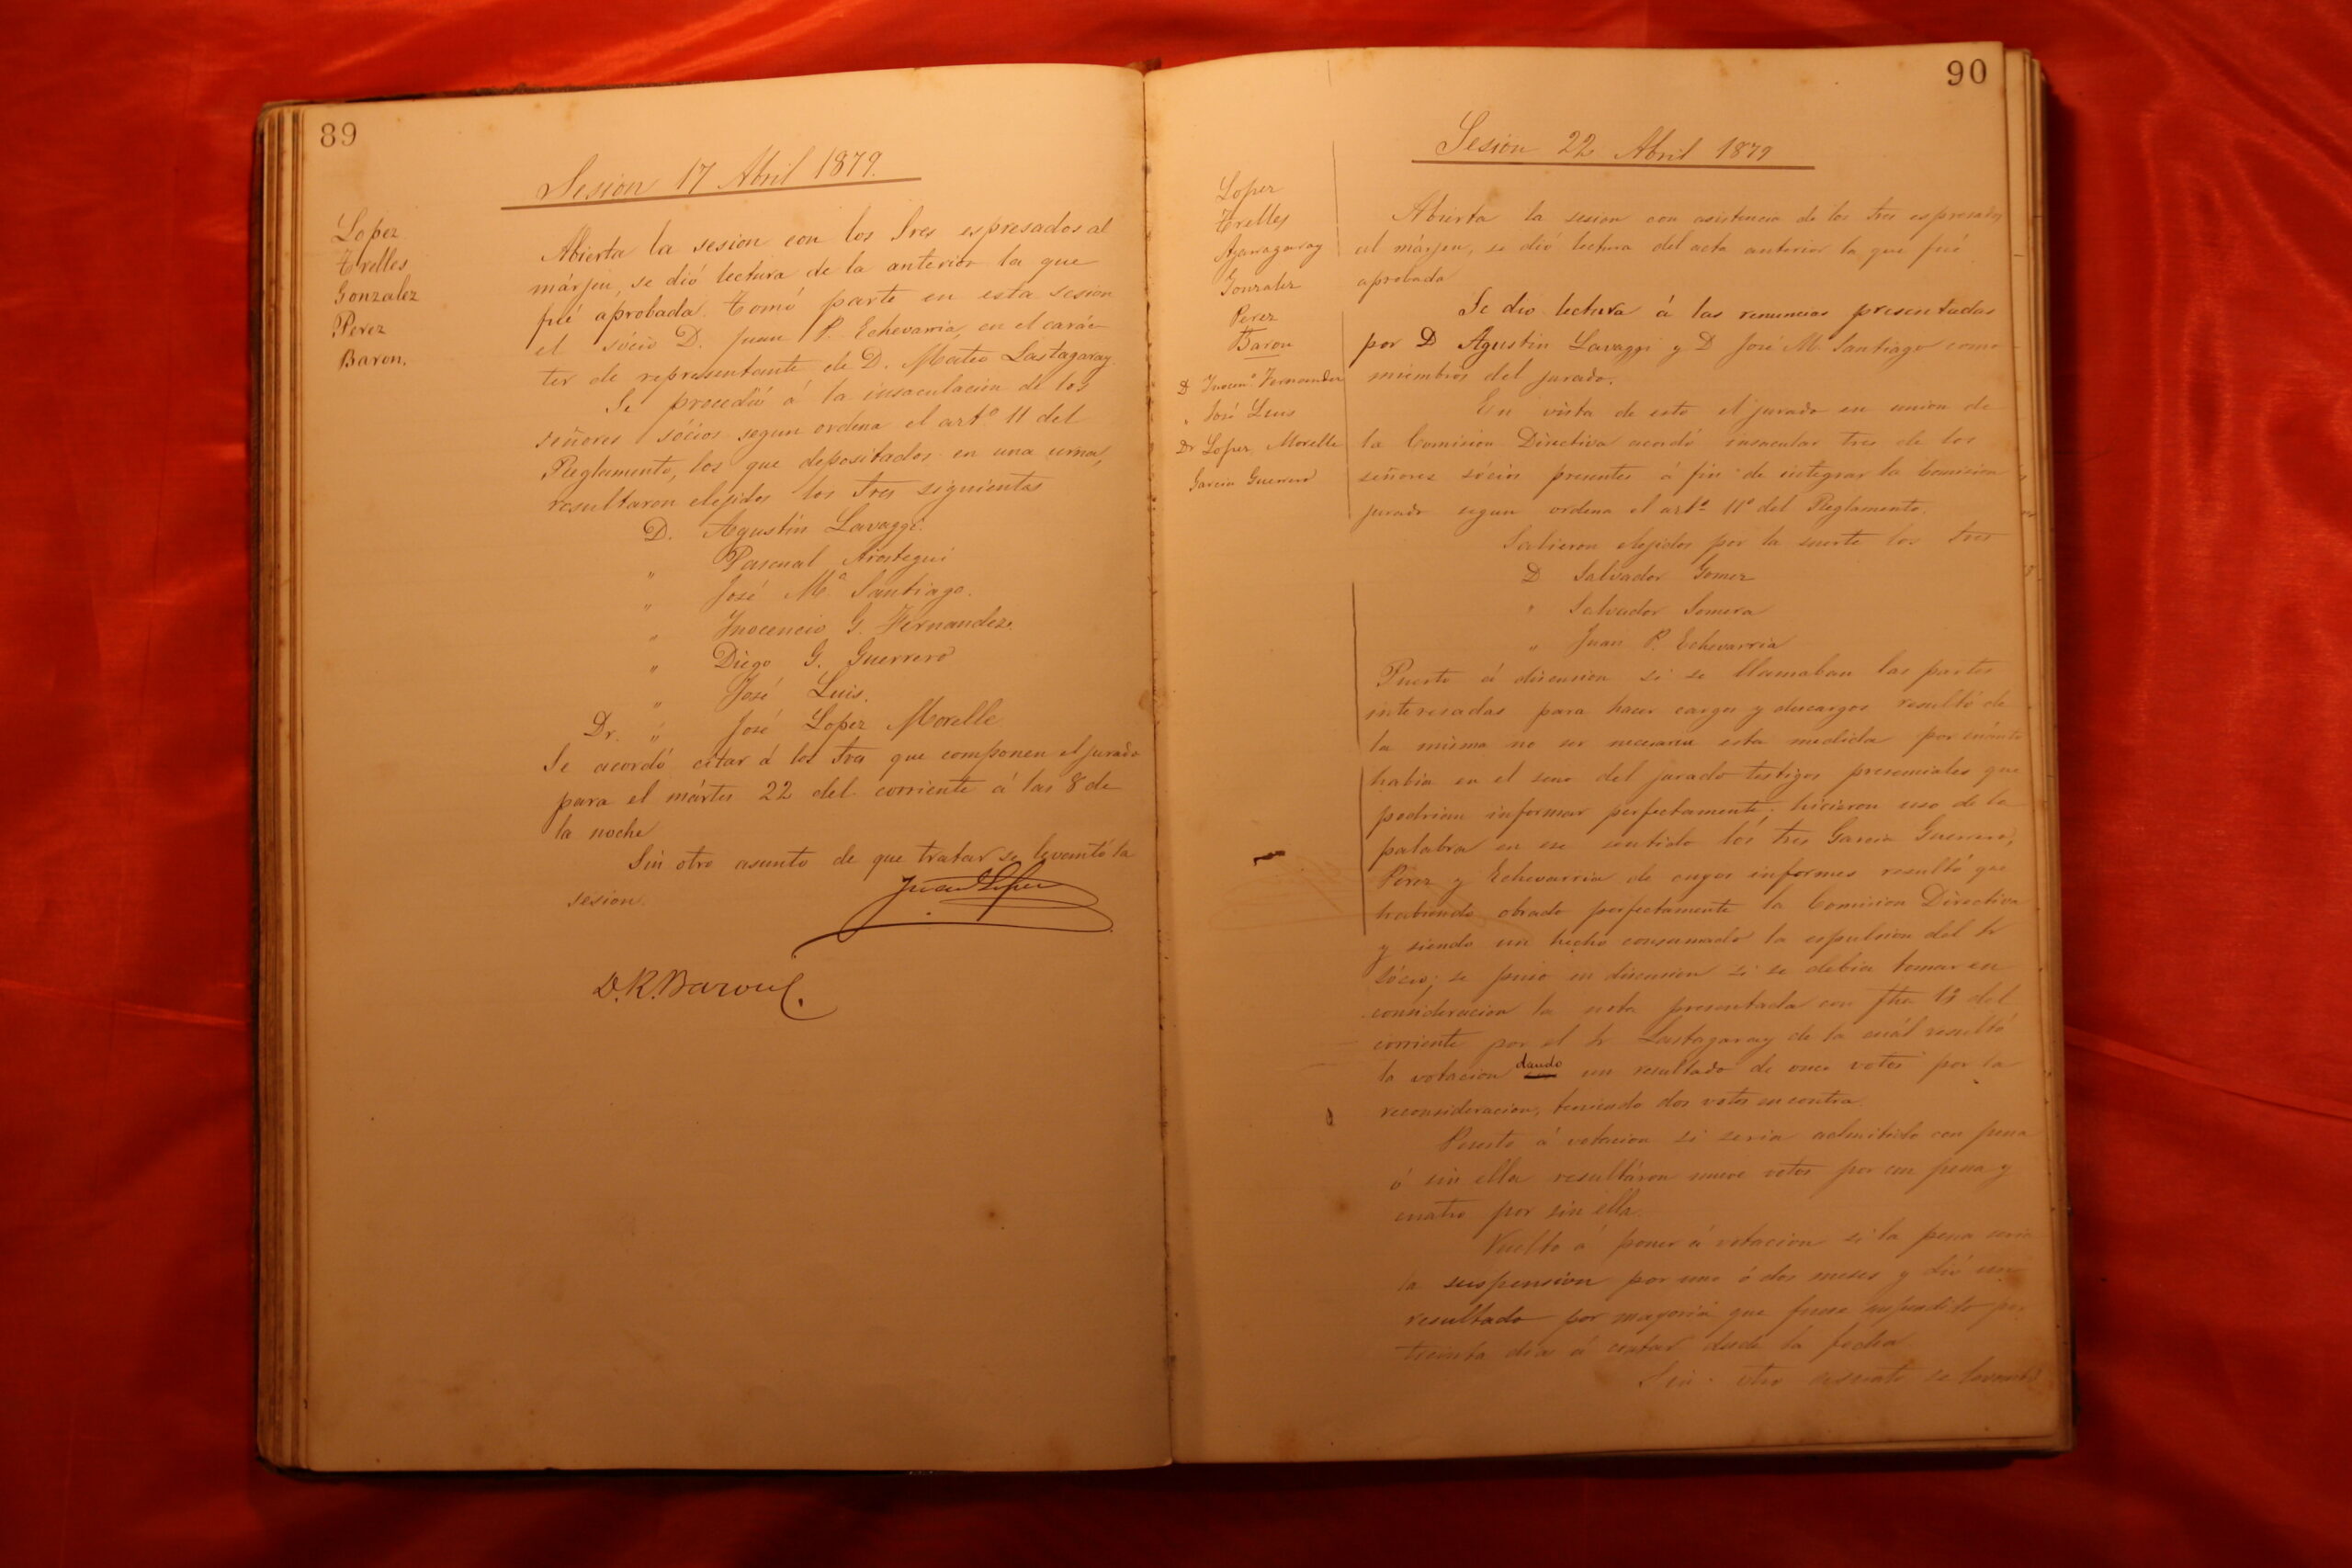 89
Sesion 17 Abril 1879.
Lopez
Trelles
Gonzalez
Perez
Baron.
Abierta la sesion con los Sres espresados al
márjen, se dió lectura de la anterior la que
fué aprobada. Tomó parte en esta sesion
el sócio D. Juan P. Echevarria, en el carác-
ter de representante de D. Mateo Lastagaray.
Se procedió á la insaculacion de los
señores sócios segun ordena el artº 11 del
Reglamento, los que depositados en una urna,
resultaron elejidos los Sres siguientes
D. Agustin Lavaggi.
" Pascual Arostegui
" José Mª Santiago.
" Inocencio G. Fernandez.
" Diego G. Guerrero
" José Luis.
Dr. " José Lopez Morelle
Se acordó citar á los Sres que componen el jurado
para el mártes 22 del corriente á las 8 de
la noche
Sin otro asunto de que tratar se levantó la
sesion.
Juan Lopez
D. R. Baron
90
Sesion 22 Abril 1879
Lopez
Trelles
Azarragaray
Gonzalez
Perez
Baron
D Inocenº Fernandez
" José Luis
Dr Lopez Morelle
Garcia Guerrero
Abierta la sesion con asistencia de los Sres espresados
al márjen, se dió lectura del acta anterior la que fué
aprobada
Se dio lectura á las renuncias presentadas
por D Agustin Lavaggi y D José M. Santiago como
miembros del jurado.
En vista de esto el jurado en union de
la Comision Directiva acordó insacular tres de los
señores sócios presentes á fin de integrar la Comision
jurado segun ordena el artº 11º del Reglamento.
Salieron elejidos por la suerte los Sres
D Salvador Gomez
" Salvador Somera
" Juan P. Echevarria
Puesto á discusion si se llamaban las partes
interesadas para hacer cargos y descargos resultó de
la misma no ser necesaria esta medida por cuánto
habia en el seno del jurado testigos presenciales que
podrian informar perfectamente; hicieron uso de la
palabra en ese sentido los Sres Garcia Guerrero,
Perez y Echevarria de cuyos informes resultó que
habiendo obrado perfectamente la Comision Directiva
y siendo un hecho consumado la espulsion del Sr
sócio; se puso en discusion si se debia tomar en
consideracion la nota presentada con fha 13 del
corriente por el Sr Lastagaray de la cuál resultó
la votacion dando un resultado de once votos por la
reconsideracion, teniendo dos votos en contra
Puesto á votacion si seria admitido con pena
ó sin ella resultáron nueve votos por con pena y
cuatro por sin ella.
Vuelto á poner á votacion si la pena seria
la suspension por uno ó dos meses y dió un
resultado por mayoria que fuese suspendido por
treinta dias á contar desde la fecha
Sin otro asunto se levantó